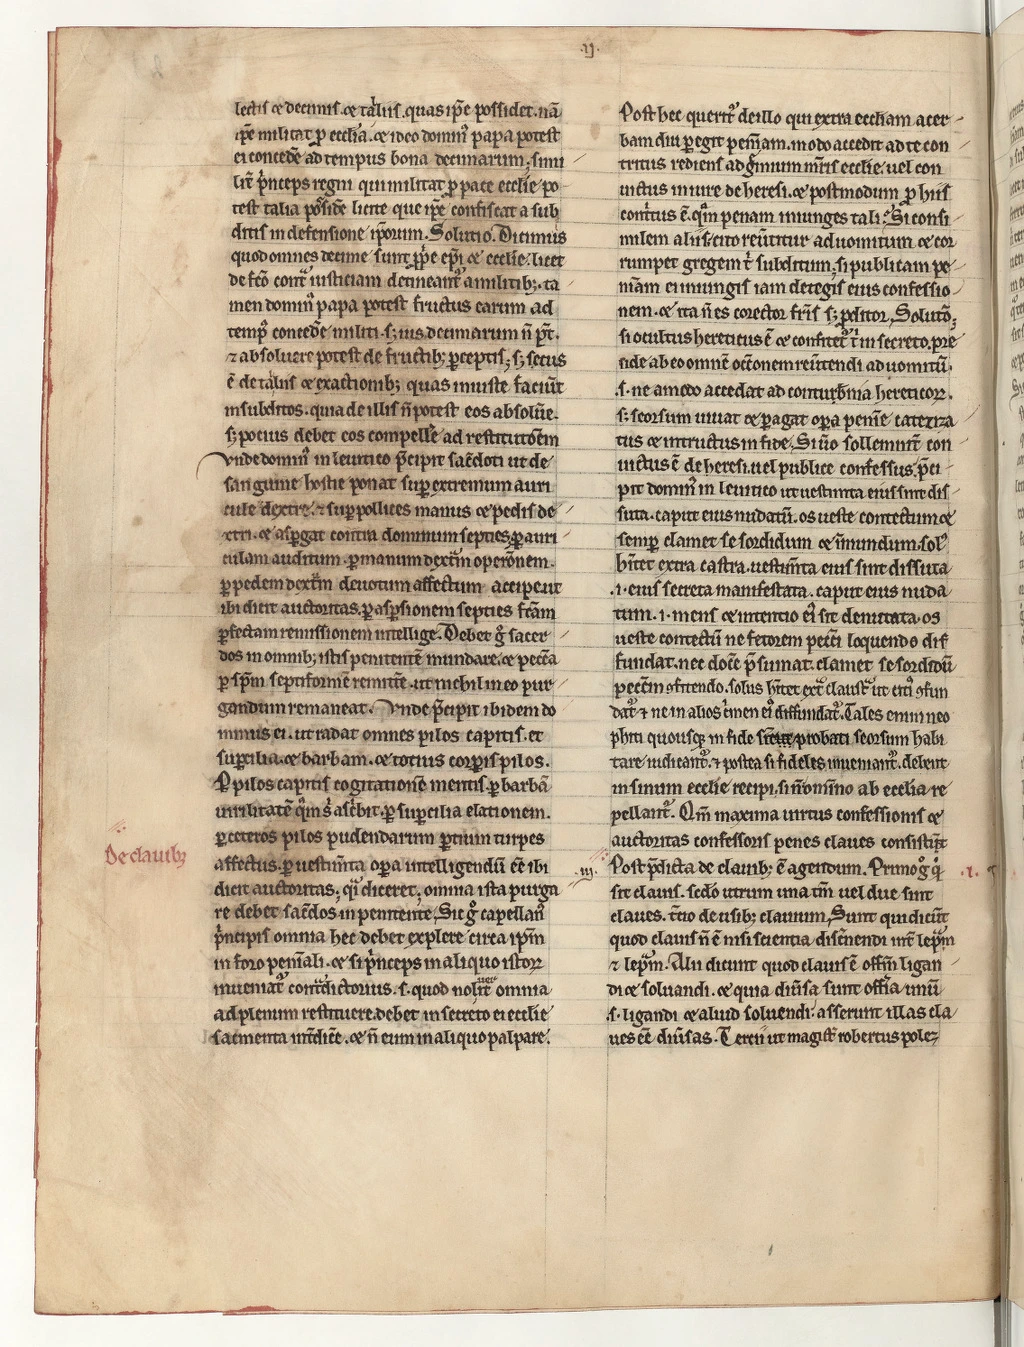 .ij.
lectis ⁊ decimis. ⁊ talliis. quas ip̄e possidet. nā
ip̄e militat ꝑ eccl̄ia. ⁊ ideo domin᷒ papa potest
ei conced̄e ad tempus bona decimarum; simi
lit̄ p̄nceps regni qui militat ꝑ pace eccl̄ie po
test talia possid̄e licite que ip̄e confiscat a sub
ditis in defensione ip̄orum. Solutio. Dicimus
quod omnes decime sunt ꝓp̄e ep̄i ⁊ eccl̄ie. licet
de fc̄o cont̄ iusticiam detineant᷑ a militib;. ta
men domin᷒ papa potest fructus earum ad
temp᷒ conced̄e militi. s; ius decimarum n̄ pt̄.
⁊ absoluere potest de fructib; ꝑceptis; s; secus
ē de talliis ⁊ exactionib; quas iniuste faciūt
in subditos. quia de illis n̄ potest eos absolūe.
s; pocius debet eos compell̄e ad restitutōem
vnde domin᷒ in leuitico p̄cipit sac̄doti ut de
sanguine hostie ponat sup̄ extremum auri
cule dextre. ⁊ sup̄ pollices manus ⁊ pedis de
xtri. ⁊ asꝑgat contra dominum septies. ꝑ auri
culam auditum. ꝑ manum dext̄m oper̄onem.
ꝑ pedem dext̄m deuotum affectum accipe ut
ibi dicit auctoritas. ꝑ asꝑsionem septies fc̄am
ꝑfectam remissionem intellige. Debet g̊ sacer
dos in omnib; istis penitentē mundare. ⁊ pecc̄a
ꝑ sp̄m septiformē remitt̄e. ut nichil in eo pur
gandum remaneat. Vnde p̄cipit ibidem do
minus ei. ut radat omnes pilos capitis. et
suꝑcilia. ⁊ barbam. ⁊ totius corꝑis pilos.
P pilos capitis cogitationē mentis. ꝑ barbā
uirilitatē
ꝑ suꝑcilia elationem.
ꝑ ceteros pilos pudendarum ꝑtium turpes
affectus. ꝑ uestim̄ta oꝑa intelligendū eē ibi
dicit auctoritas; q̄i diceret. omnia ista purga
re debet sac̄dos in penitente. Sic g̊ capellan᷒
p̄ncipis omnia hec debet explere circa ip̄m
in foro penit̄iali. ⁊ si p̄nceps in aliquo istorꝝ
inueniat᷑ cont̄dictorius. s. quod nolit omnia
ad plenum restituere. debet in secreto ei eccl̄ie
sacmenta int̄dic̄e. ⁊ n̄ eum in aliquo palpare.
De clauib;
Post hec querit᷑ de illo qui extra eccl̄iam acer
bam diu ꝑegit penit̄iam. modo accedit ad te con
tritus rediens ad g̊mium mr̄is eccl̄ie. uel con
uictus in iure de heresi. ⁊ postmodum ꝑ hiis
cont̄tus ē. qm̄ penam iniunges tali. Si consi
milem aliis. cito reūtitur ad uomitum ⁊ cor
rumpet gregem t̄ subditum; si publicam pe
niam ei iniungis iam detegis eius confessio
nem. ⁊ ita n̄ es corector fr̄is s; ꝓditor. Solutō;
si occultus hereticus ē ⁊ confitet᷑ t̄ in secreto. pre
cide ab eo omnē occōnem reūtendi ad uomitū.
.s. ne amodo accedat ad conturb̄nia hereticorꝝ.
s; seorsum uiuat ⁊ ꝑagat oꝑa penit̄ie cateziza
tus ⁊ instructus in fide. Si ūo sollemnit̄ con
uictus ē de heresi. uel publice confessus. p̄ci
pit domin᷒ in leuitico ut uestimta eius sint dis
suta. caput eius nudatū. os ueste contectum ⁊
semp̄ clamet se sordidum ⁊ inmundum. sol᷒
h̄itet extra castra. uestim̄ta eius sint dissuta
.i. eius secreta manifestata. caput eius nuda
tum. i. mens ⁊ intentio ei᷒ sit denudata. os
ueste contectū ne fetorem pecc̄i loquendo dif
fundat. nec doc̄e p̄sumat. clamet se sordidū
pecc̄m ꝯfitendo. solus h̄itet ext̄ claust᷑ ut eni᷒ ꝯfun
dat᷑ ⁊ ne in alios c̄men ei᷒ diffundat᷑. Tales enim neo
phiti quousq; in fide probati seorsum habi
tare iudicant᷑. ⁊ postea si fideles inueniant᷑. debent
in sinum eccl̄ie recipi. sin̄ omnino ab eccl̄ia re
pellant᷑. Qm̄ maxima uirtus confessionis ⁊
auctoritas confessoris penes claues consistit
.iij.
Post p̄dicta de clauib; ē agendum. Primo g̊ q̄
.i.
sit clauis. sed̊o utrum una tm̄ uel due sint
claues. t̄cio de usib; clauium. Sunt qui dicūt
quod clauis n̄ ē nisi scientia disc̄nendi int̄ lep̄m
⁊ lep̄m. Alii dicunt quod clauis ē offm̄ ligan
di ⁊ soluendi. ⁊ quia diūsa sunt offīa unū
.s. ligandi ⁊ aliud soluendi. asserunt illas cla
ues eē diūsas. Tercii ut magist̄ robertus pole;